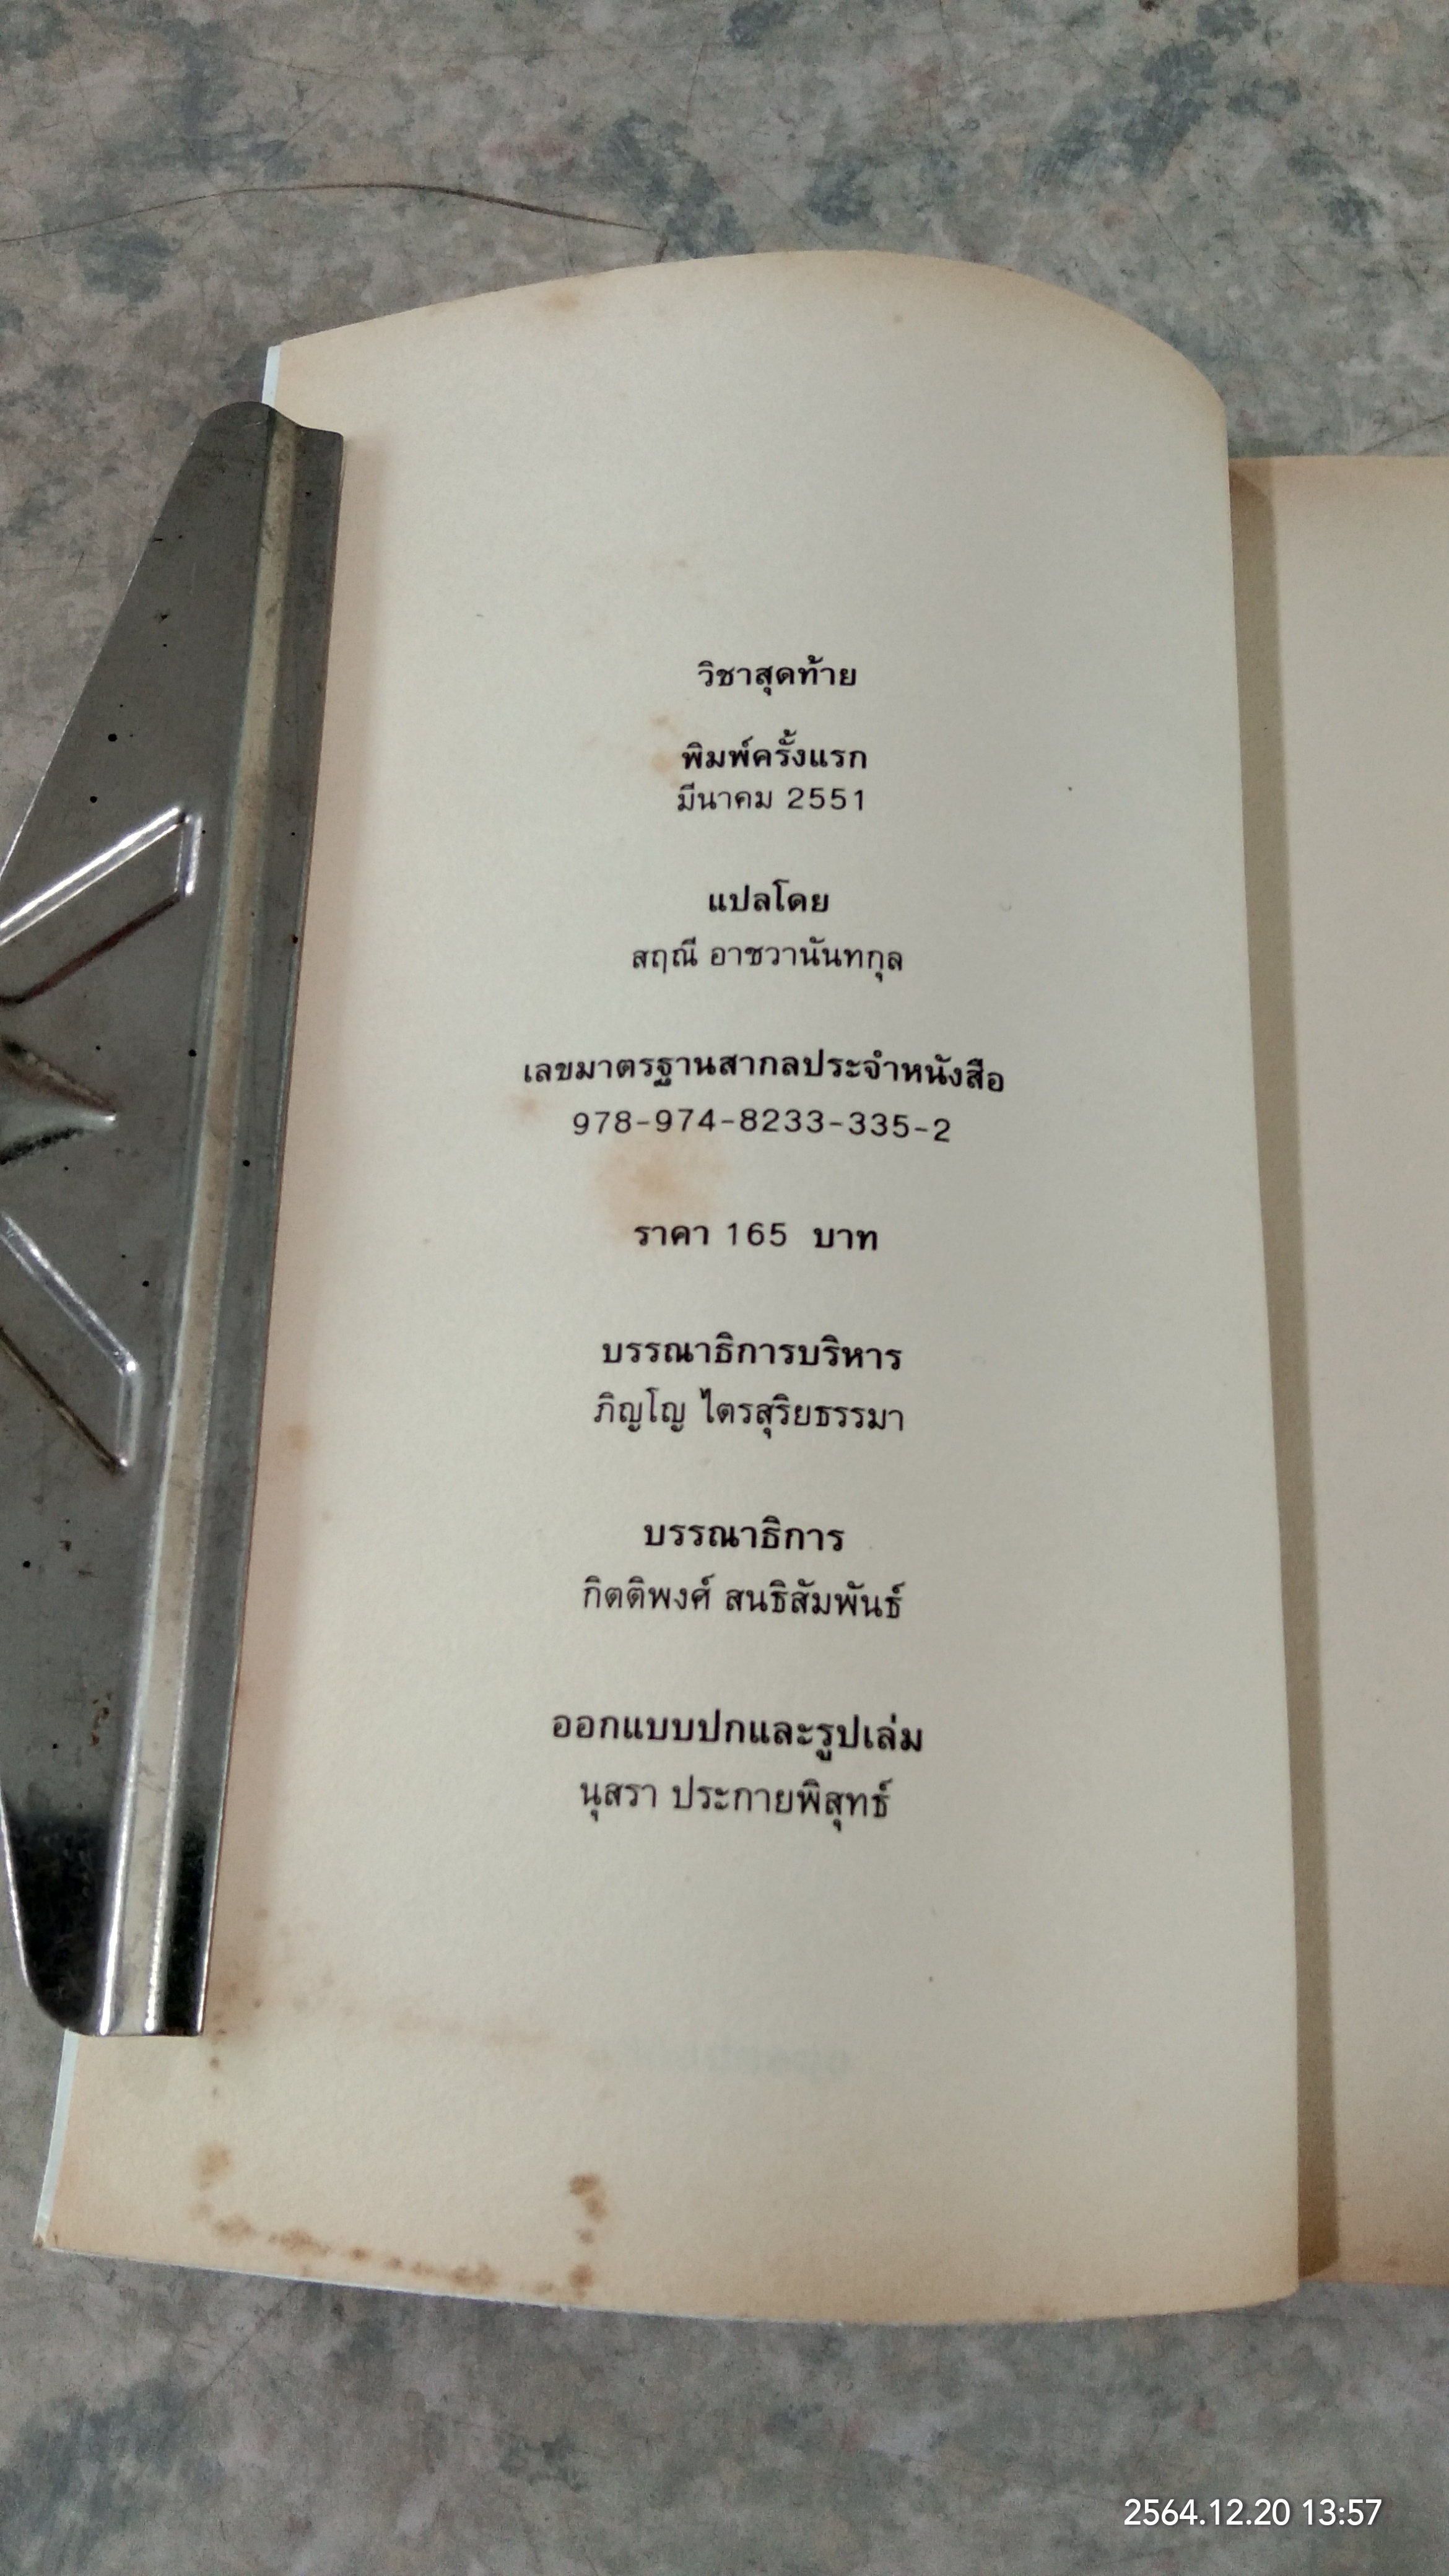 วิชาสุดท้าย
พิมพ์ครั้งแรก
มีนาคม 2551
แปลโดย
สฤณี อาชวานันทกุล
เลขมาตรฐานสากลประจำหนังสือ
978-974-8233-335-2
ราคา 165 บาท
บรรณาธิการบริหาร
ภิญโญ ไตรสุริยธรรมา
บรรณาธิการ
กิตติพงศ์ สนธิสัมพันธ์
ออกแบบปกและรูปเล่ม
นุสรา ประกายพิสุทธ์
2564.12.20 13:57